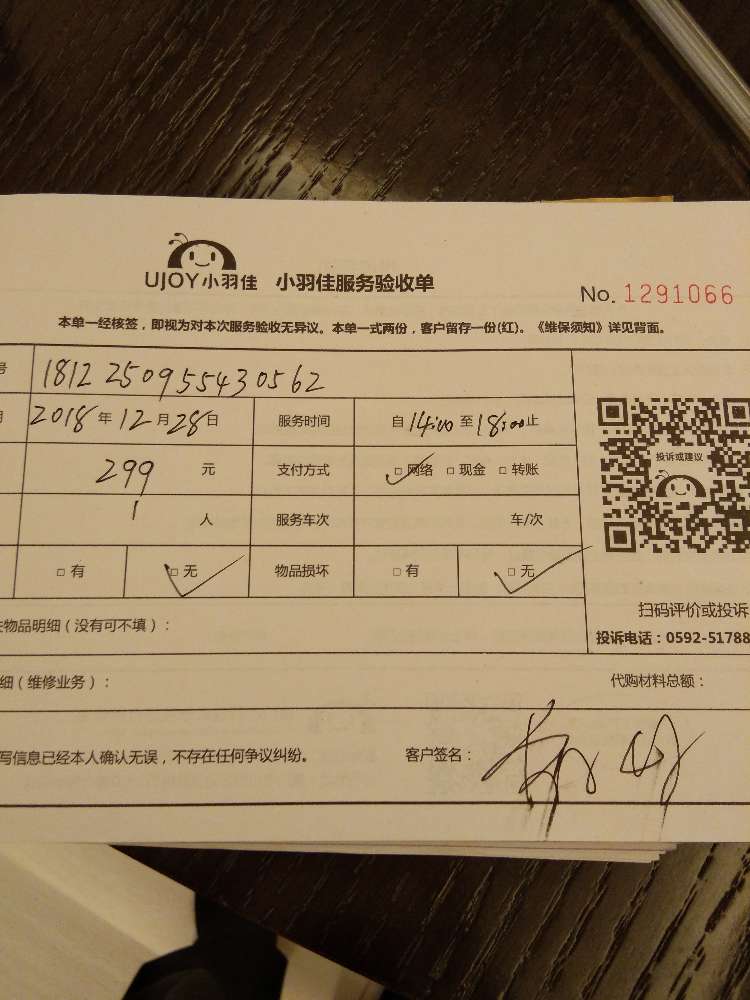 UJOY小羽佳 小羽佳服务验收单
No. 1291066
本单一经核签，即视为对本次服务验收无异议。本单一式两份，客户留存一份(红)。《维保须知》详见背面。
号 1812250955430562
月 2018年12月28日 服务时间 自14:00至18:00止
299 元 支付方式 □网络 □现金 □转账
1 人 服务车次 车/次
□有 □无 物品损坏 □有 □无
投诉或建议
扫码评价或投诉
投诉电话：0592-51788
物品明细（没有可不填）：
细（维修业务）： 代购材料总额：
写信息已经本人确认无误，不存在任何争议纠纷。 客户签名：